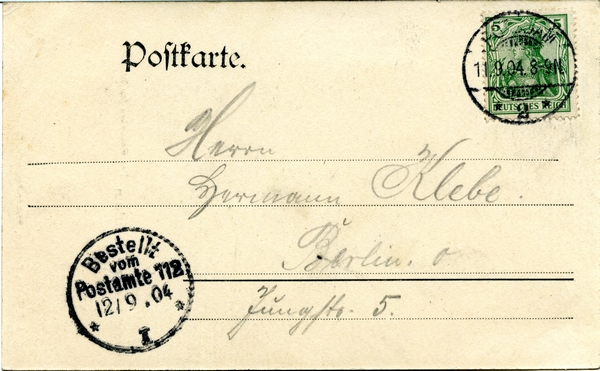 Postkarte.
5 5
11.9.04.8-9N.
DEUTSCHES REICH
* 2 *
Herrn
Hermann Klebe.
Berlin. O
Jungstr. 5.
Bestellt
vom
Postamte 112
12/9.04
* I. *